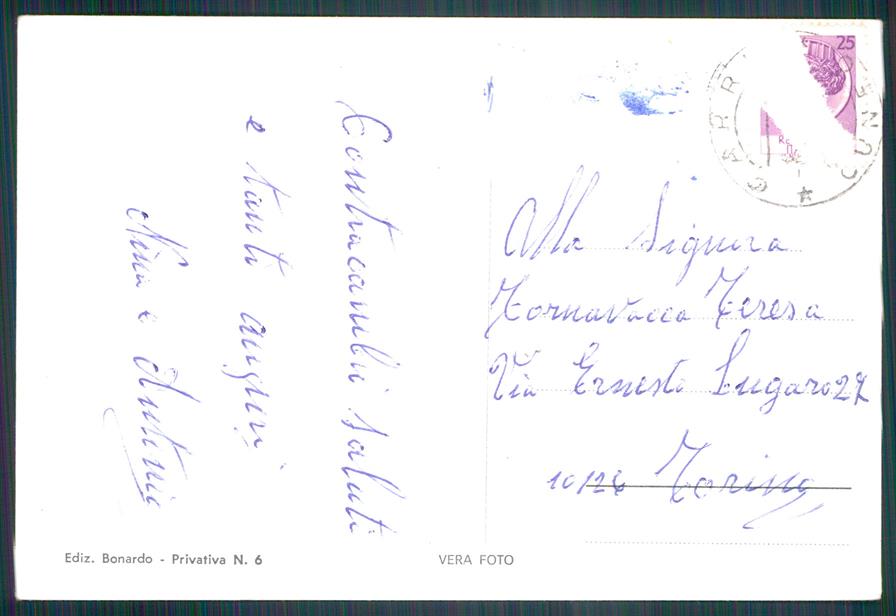 Contracambio saluti
e tanti auguri
Nina e Antonio
25
CARRÙ CUNEO
Alla Signora
Tornavacca Teresa
Via Ernesto Lugaro 27
10126 Torino
Ediz. Bonardo - Privativa N. 6
VERA FOTO